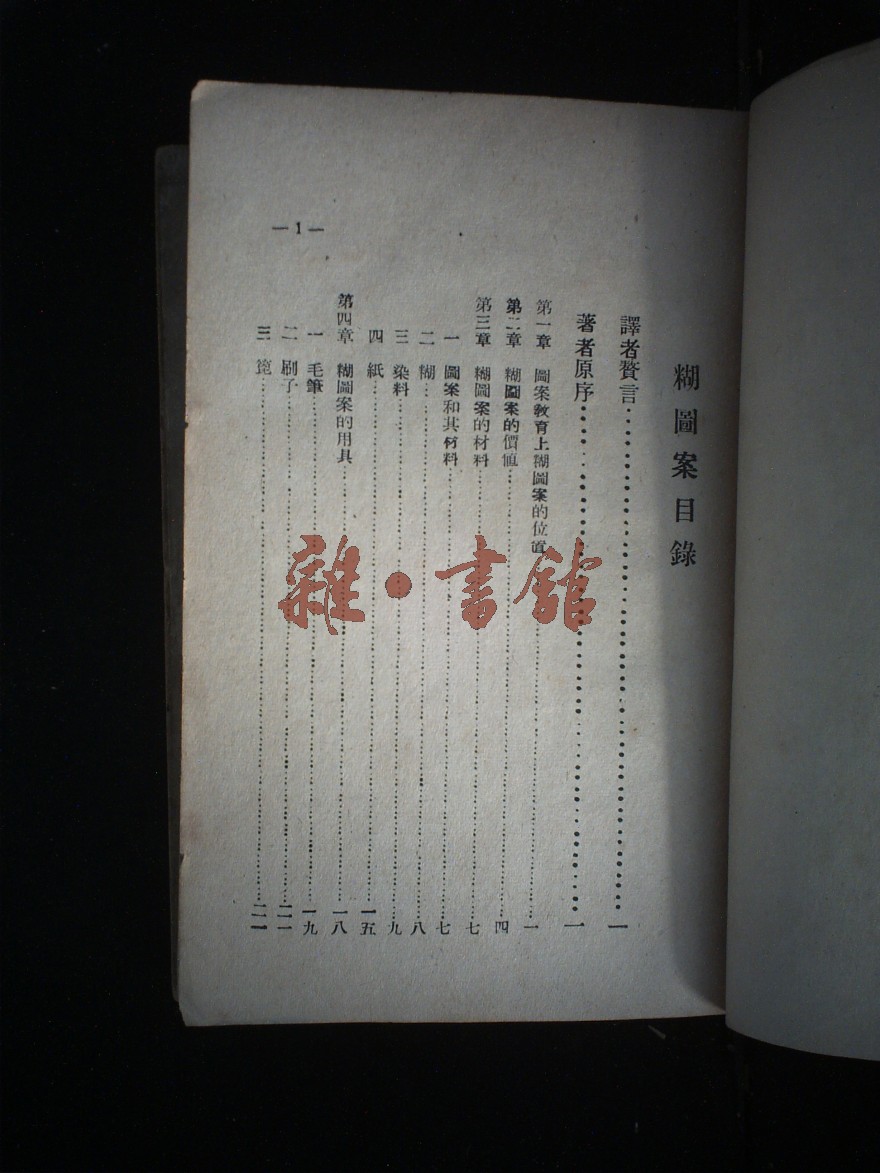 糊圖案目錄
譯者贅言 一
著者原序 一
第一章 圖案教育上糊圖案的位置 一
第二章 糊圖案的價値 四
第三章 糊圖案的材料 七
一 圖案和其材料 七
二 糊 八
三 染料 九
四 紙 一五
第四章 糊圖案的用具 一八
一 毛筆 一九
二 刷子 二一
三 箆 二一
—1—
雜·書館